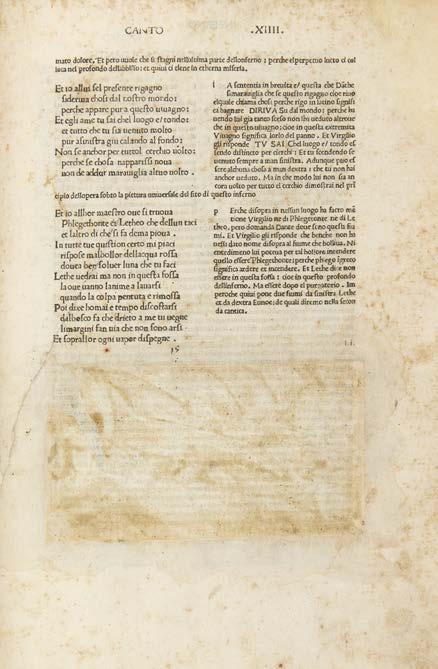 CANTO .XIIII.
mato dolore. Et pero uuole che si stagni nellultima parte dellonferno: perche el perpetuo lutto si col
luca nel profondo dellabisso: et quiui ci tiene in etherna miseria.
Et io allui sel presente rigagno
siderıua chosi dal nostro mondo:
perche appare pur a questo uiuagno:
Et egli ame tu sai chel luogo e/ tondo:
et tutto che tu sia uenuto molto
pur a sinistra giu calando al fondo:
Non se anchor per tuttol cerchio uolto:
perche se chosa napparissi noua
non de addur marauiglia altuo uolto.
A sententia in breuita e/ questa che Dāthe
simarauiglia che se questo rigagno cioe riuo
elquale chiama chosi perche rigo in latino signifi
ca bagnare DIRIVA Da dal mondo: perche ha
uendo lui gia tanto sceso non ihe ueduto altroue
che in questo uiuagno: cioe in questa extremita
Viuagno significa lorlo del panno. Et Virgilio
gli risponde TV SAI Chel luogo e/ tondo et
sendo distincto per cerchi: Et tu scendendo se
uenuto sempre a man sinistra. Adunque puo es
sere alchuna chosa a man dextra che tu non hai
anchor ueduto. Ma in che modo lui non sia an
cora uolto per tutto el cerchio dimostrai nel pri
cipio dellopera sobto la pictura uniuersale del sito di questo inferno
Et io allhor maestro oue si truoua
Phlegethonte et Letheo che dellun taci
et laltro di che si fa dema pioua.
In tutte tue question certo mi piaci
rispose mal bollor dellacqua rossa
douea ben soluer luna che tu faci
Lethe uedrai ma non in questa fossa
la oue uanno lanime a lauarsi
quando la colpa pentuta e rimossa
Poi dixe homai e tempo discostarsi
dal bosco fa che dirieto a me tu uegne
li margini fan uia che non sono arsi
Et sopra llor ogni uapor dispegne.
Erche disopra in nessun luogo ha facto mē
tione Virgilio ne di Phlegethonte ne di Le
theo, pero domanda Dante doue sono questi fiu
mi. Et Virgilio gli risponde che benche non ha
uessi dato nome disopra al fiume che bolliua. Ni
entedimeno lui potea per tal bollore intendere
quello essere Phlegethonte: perche phlego in greco
significa ardere et incendere. Et Lethe dixe non
essere in questa fossa: cioe in questo profondo
dellinferno. Ma essere dopo el purgatorio. Im
peroche quiui pone due fiumi da sinistra Lethe
et da dextra Eunoe: de quali diremo nella secon
da cantica.